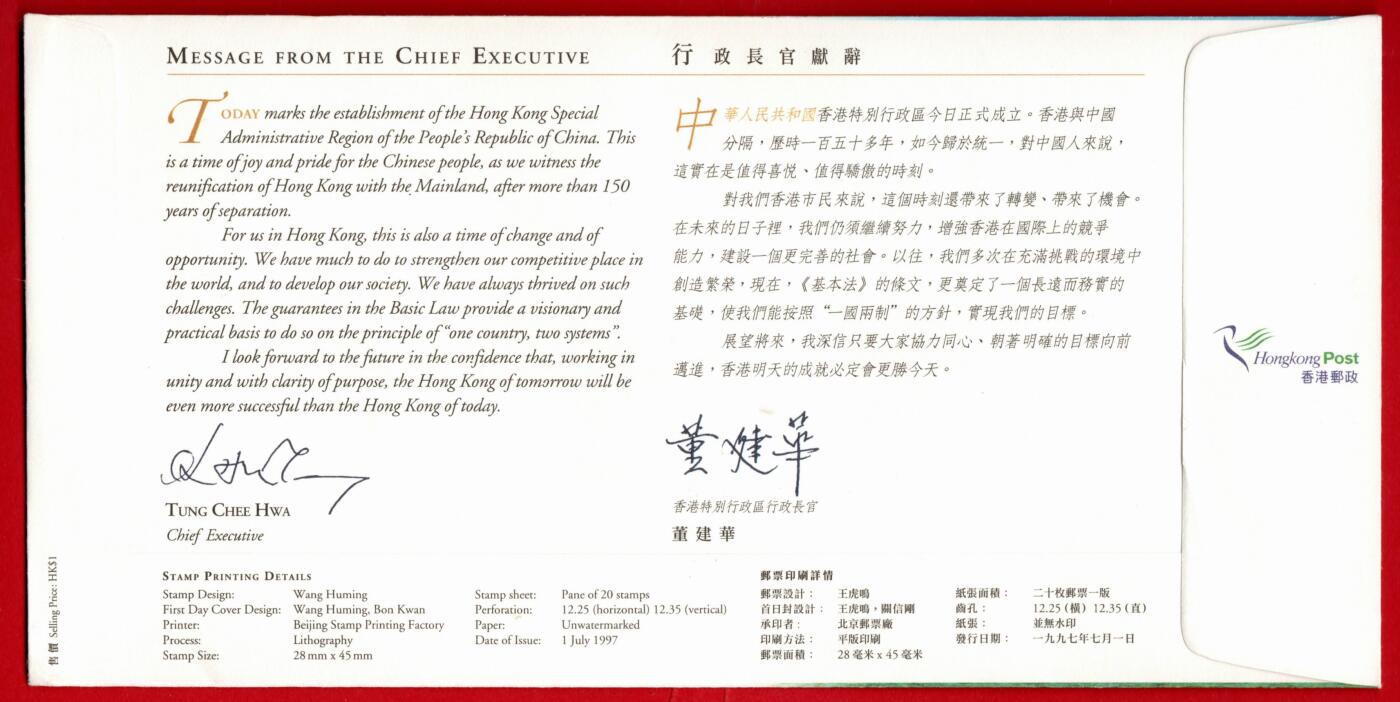 MESSAGE FROM THE CHIEF EXECUTIVE
TODAY marks the establishment of the Hong Kong Special
Administrative Region of the People's Republic of China. This
is a time of joy and pride for the Chinese people, as we witness the
reunification of Hong Kong with the Mainland, after more than 150
years of separation.
For us in Hong Kong, this is also a time of change and of
opportunity. We have much to do to strengthen our competitive place in
the world, and to develop our society. We have always thrived on such
challenges. The guarantees in the Basic Law provide a visionary and
practical basis to do so on the principle of “one country, two systems”.
I look forward to the future in the confidence that, working in
unity and with clarity of purpose, the Hong Kong of tomorrow will be
even more successful than the Hong Kong of today.
TUNG CHEE HWA
Chief Executive
行政長官獻辭
中華人民共和國香港特別行政區今日正式成立。香港與中國
分隔，歷時一百五十多年，如今歸於統一，對中國人來說，
這實在是值得喜悅、值得驕傲的時刻。
對我們香港市民來說，這個時刻還帶來了轉變、帶來了機會。
在未來的日子裡，我們仍須繼續努力，增強香港在國際上的競爭
能力，建設一個更完善的社會。以往，我們多次在充滿挑戰的環境中
創造繁榮，現在，《基本法》的條文，更奠定了一個長遠而務實的
基礎，使我們能按照“一國兩制”的方針，實現我們的目標。
展望將來，我深信只要大家協力同心、朝著明確的目標向前
邁進，香港明天的成就必定會更勝今天。
董建華
香港特別行政區行政長官
董建華
Hongkong Post
香港郵政
售價 Selling Price: HK$1
STAMP PRINTING DETAILS
Stamp Design: Wang Huming
First Day Cover Design: Wang Huming, Bon Kwan
Printer: Beijing Stamp Printing Factory
Process: Lithography
Stamp Size: 28 mm x 45 mm
Stamp sheet: Pane of 20 stamps
Perforation: 12.25 (horizontal) 12.35 (vertical)
Paper: Unwatermarked
Date of Issue: 1 July 1997
郵票印刷詳情
郵票設計： 王虎鳴
首日封設計： 王虎鳴，關信剛
承印者： 北京郵票廠
印刷方法： 平版印刷
郵票面積： 28 毫米 x 45 毫米
紙張面積： 二十枚郵票一版
齒孔： 12.25 (橫) 12.35 (直)
紙張： 並無水印
發行日期： 一九九七年七月一日